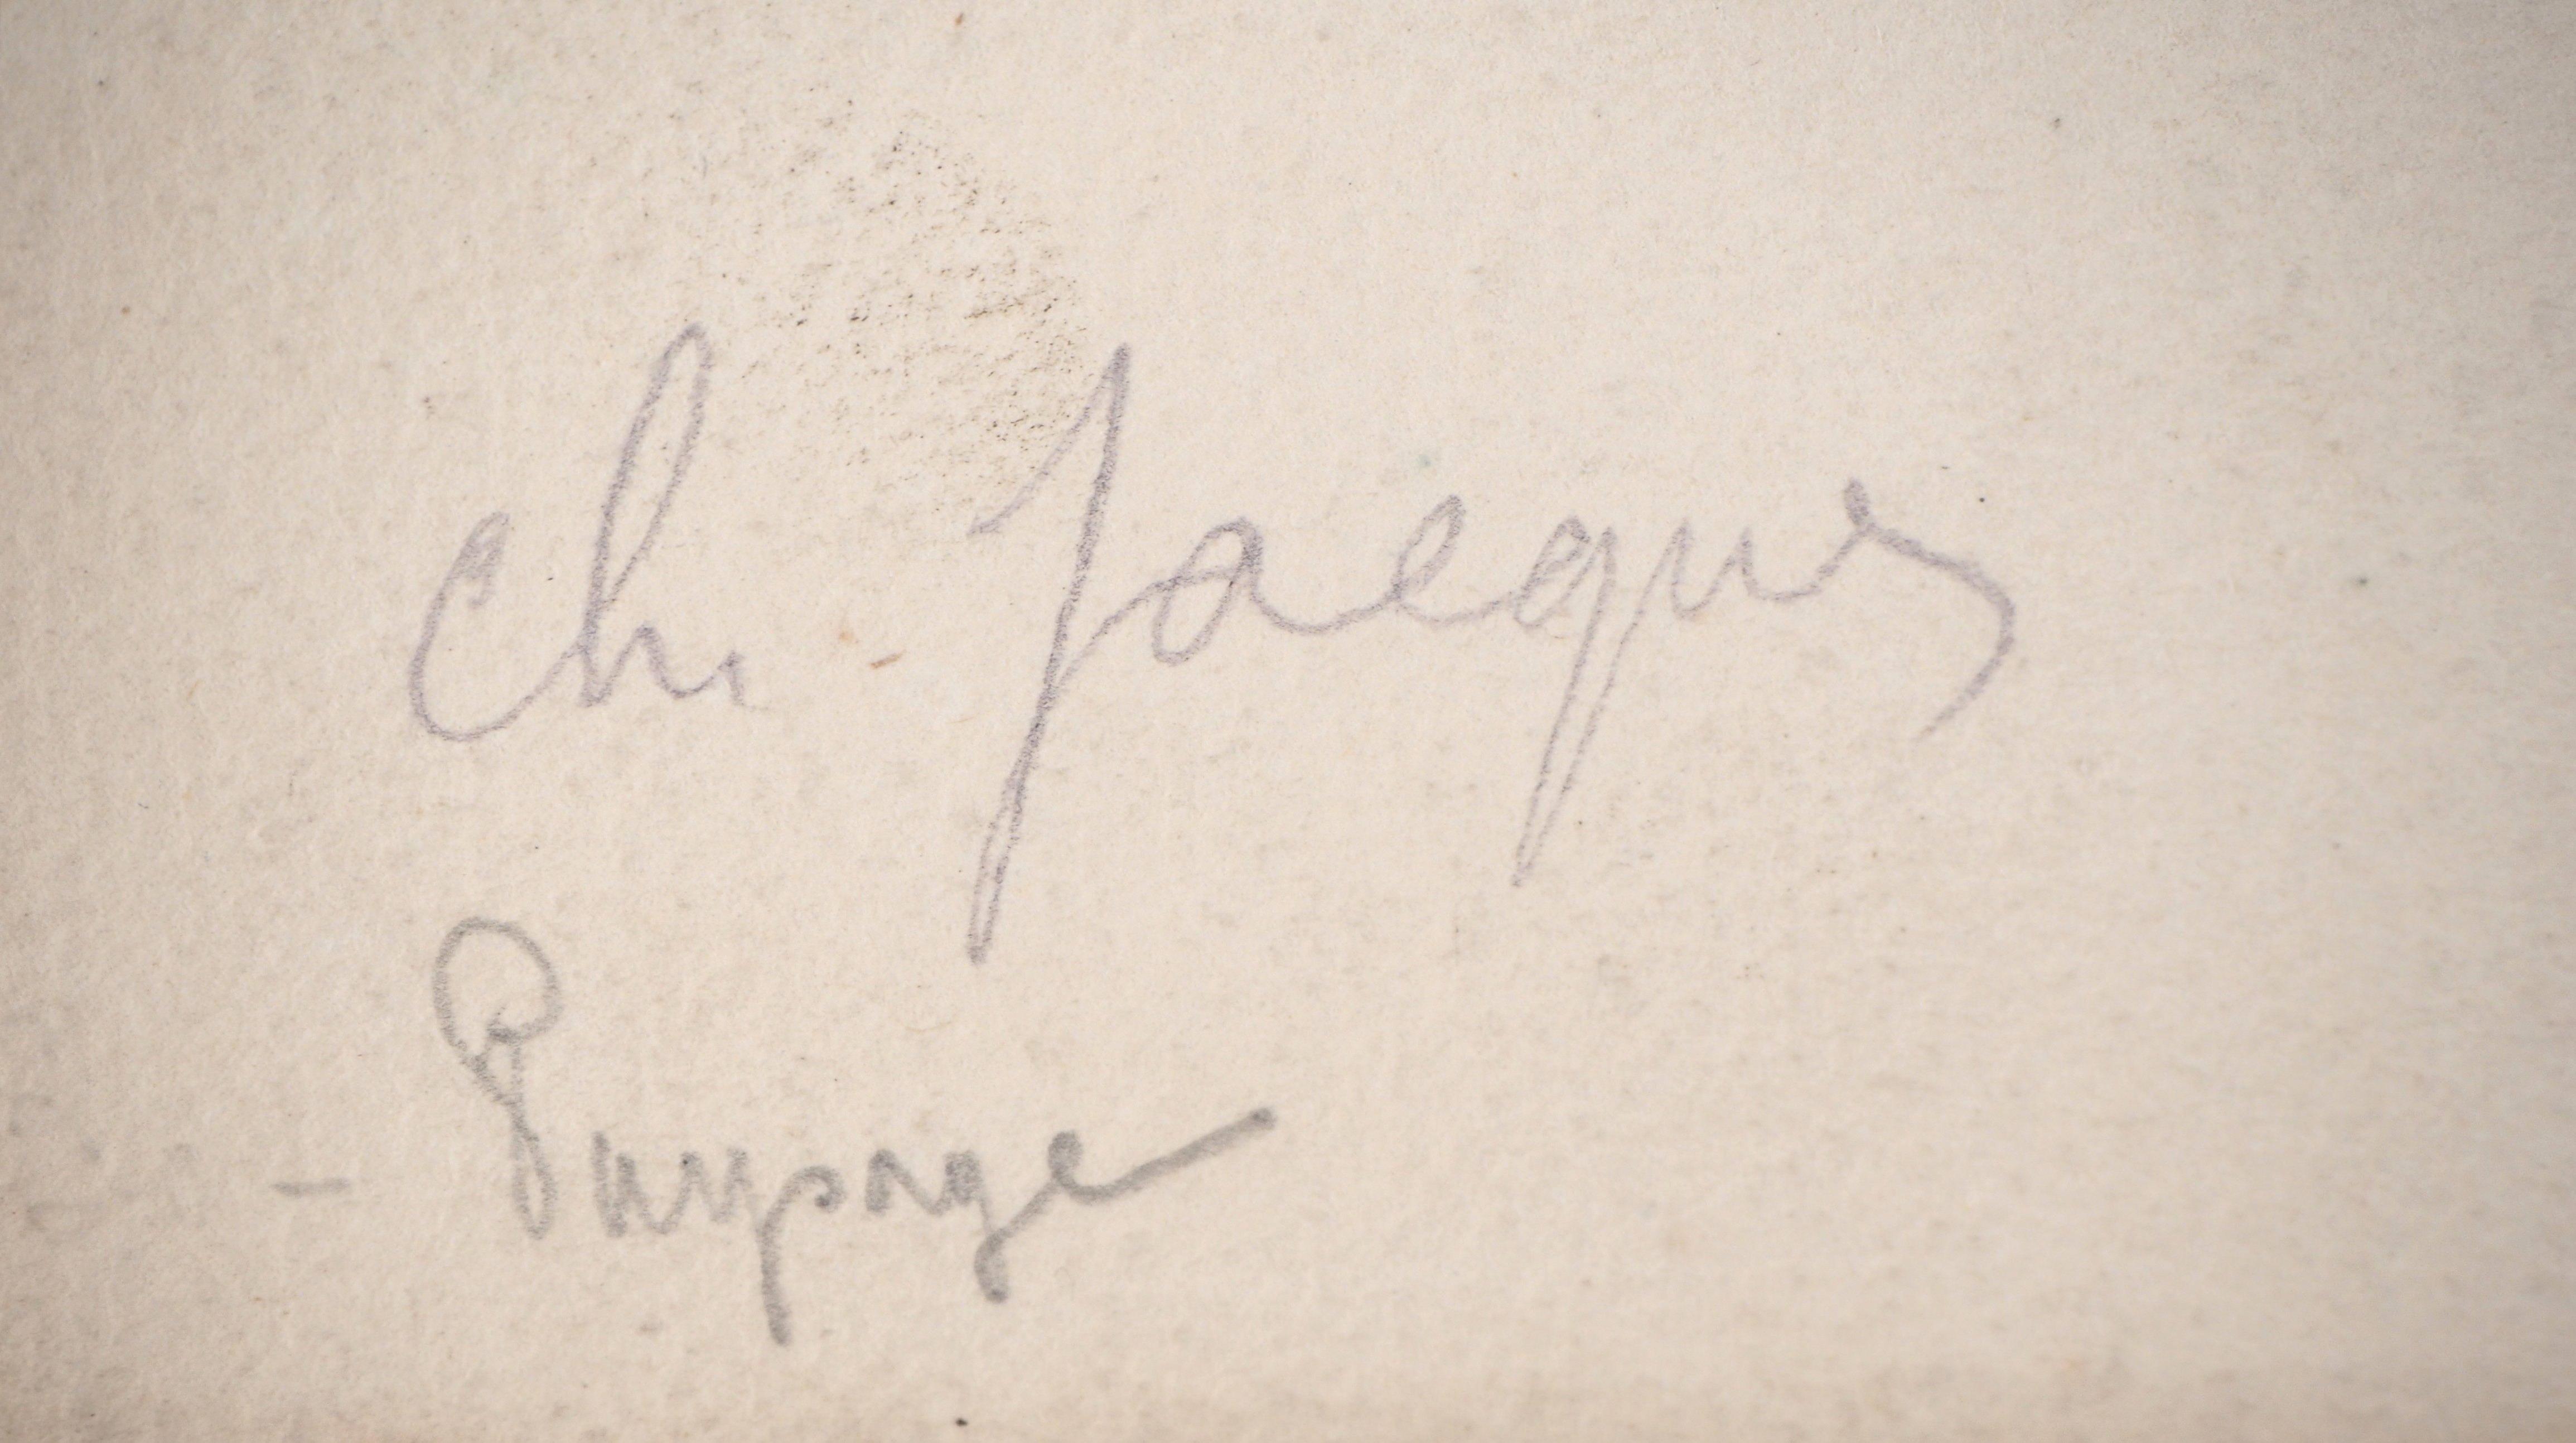 Ch. Jacques
- Paysage